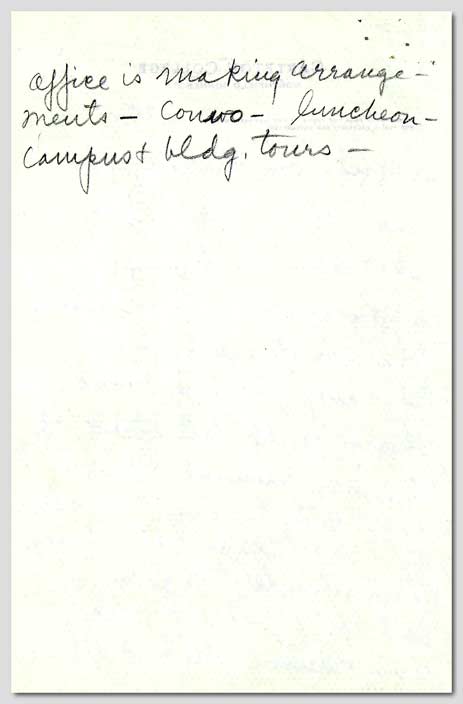 office is making arrange-
ments – Convo – luncheon –
campus + bldg. tours –